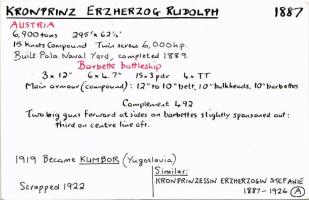 KRONPRINZ ERZHERZOG RUDOLPH 1887
AUSTRIA
6,900 tons 295' x 62¼'
15 knots Compound Twin screw 6,000 h.p.
Built Pola Naval Yard, completed 1889.
Barbette battleship
3 x 12" 6 x 4.7" 15 x 3 pdr 4 x TT
Main armour (compound): 12" to 10" belt, 10" bulkheads, 10" barbettes
Complement 492
Two big guns forward at sides on barbettes slightly sponsoned out:
third on centre line aft.
1919 Became KUMBOR (Yugoslavia)
Scrapped 1922
Similar:
KRONPRINZESSIN ERZHERZOGIN STEFANIE
1887-1926 A